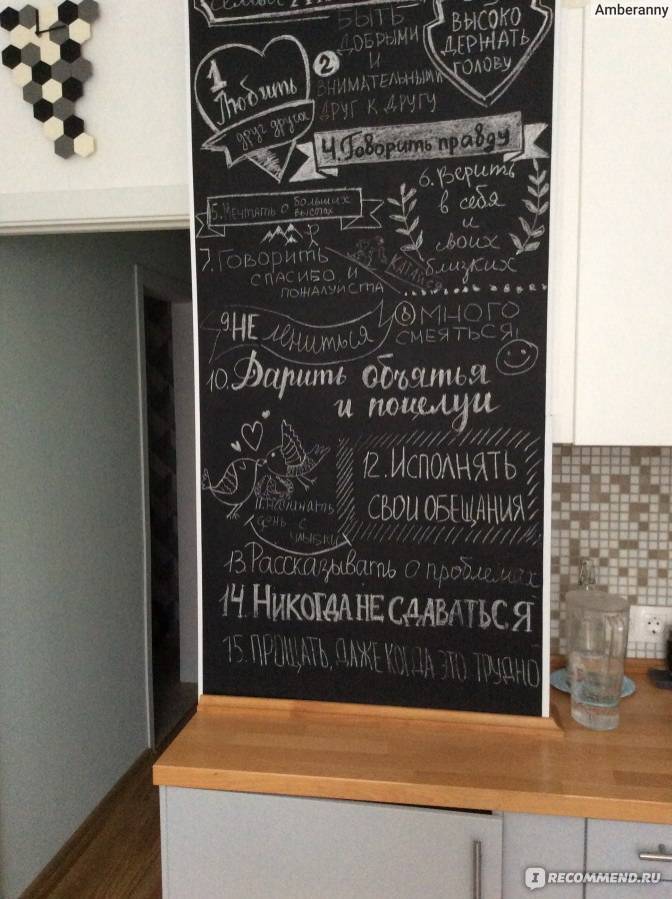 Amberanny
1 Любить
друг друга
2 БЫТЬ
ДОБРЫМИ
И
ВНИМАТЕЛЬНЫМИ
ДРУГ К ДРУГУ
ВЫСОКО
ДЕРЖАТЬ
ГОЛОВУ
4. Говорить правду
5. Мечтать о больших
высотах
6. Верить
в себя
и
своих
близких
7. ГОВОРИТЬ
СПАСИБО И
ПОЖАЛУЙСТА
8 МНОГО
СМЕЯТЬСЯ!
9. НЕ лениться
10. Дарить объятья
и поцелуи
11. Начинать
день с
улыбки
12. ИСПОЛНЯТЬ
СВОИ ОБЕЩАНИЯ
13. Рассказывать о проблемах
14. НИКОГДА НЕ СДАВАТЬСЯ
15. ПРОЩАТЬ, ДАЖЕ КОГДА ЭТО ТРУДНО
IRECOMMEND.RU